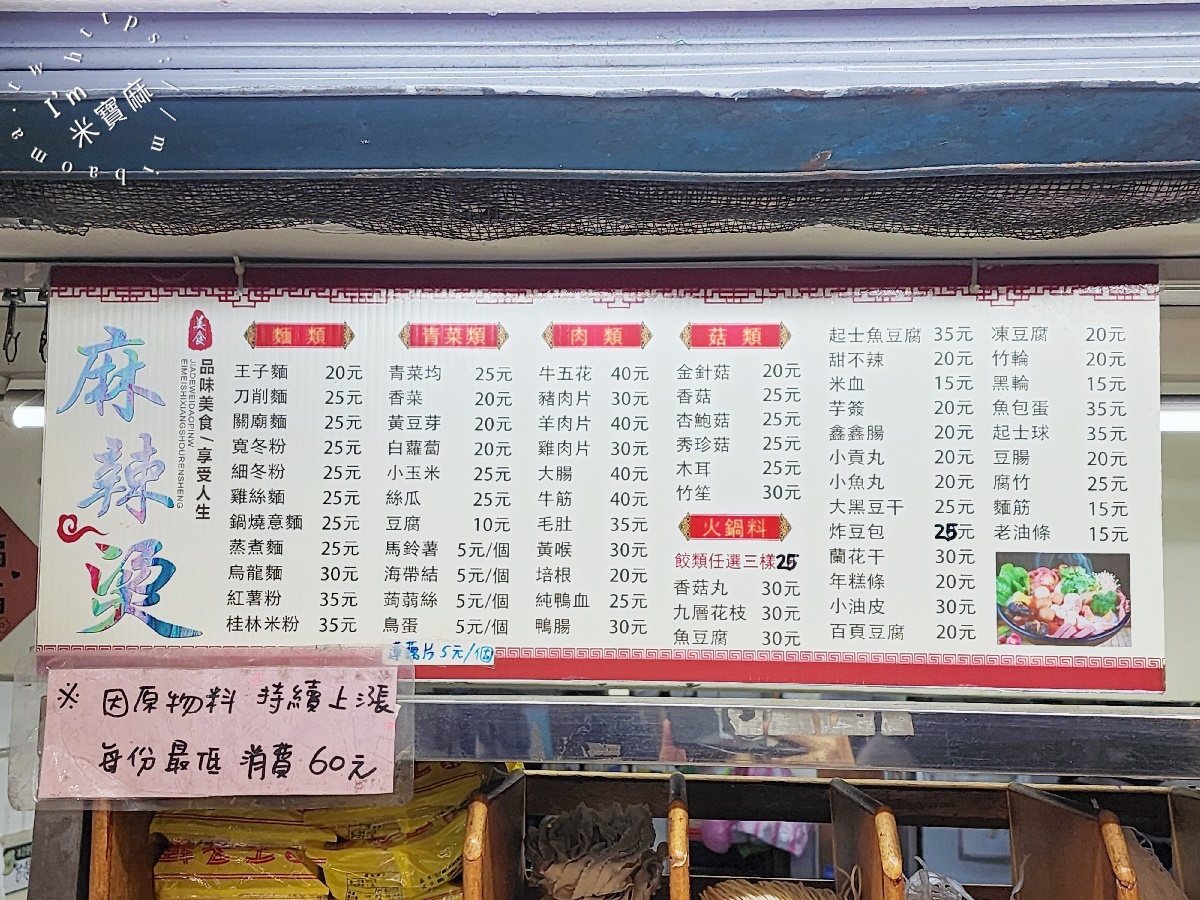 https://mibaoma.tw
I'm
米寶麻
美食
麻辣燙
品味美食/享受人生
JIADEWEIDAOPINW
EIMEISHIXIANGSHOURENSHENG
麵類
王子麵 20元
刀削麵 25元
關廟麵 25元
寬冬粉 25元
細冬粉 25元
雞絲麵 25元
鍋燒意麵 25元
蒸煮麵 25元
烏龍麵 30元
紅薯粉 35元
桂林米粉 35元
青菜類
青菜均 25元
香菜 20元
黃豆芽 20元
白蘿蔔 20元
小玉米 25元
絲瓜 25元
豆腐 10元
馬鈴薯 5元/個
海帶結 5元/個
蒟蒻絲 5元/個
鳥蛋 5元/個
蓮藕片 5元/個
肉類
牛五花 40元
豬肉片 30元
羊肉片 40元
雞肉片 30元
大腸 40元
牛筋 40元
毛肚 35元
黃喉 30元
培根 20元
純鴨血 25元
鴨腸 30元
菇類
金針菇 20元
香菇 25元
杏鮑菇 25元
秀珍菇 25元
木耳 25元
竹笙 30元
火鍋料
餃類任選三樣25
香菇丸 30元
九層花枝 30元
魚豆腐 30元
起士魚豆腐 35元
甜不辣 20元
米血 15元
芋簽 20元
鑫鑫腸 20元
小貢丸 20元
小魚丸 20元
大黑豆干 25元
炸豆包 25元
蘭花干 30元
年糕條 20元
小油皮 30元
百頁豆腐 20元
凍豆腐 20元
竹輪 20元
黑輪 15元
魚包蛋 35元
起士球 35元
豆腸 20元
腐竹 25元
麵筋 15元
老油條 15元
※ 因原物料 持續上漲
每份最低 消費 60元